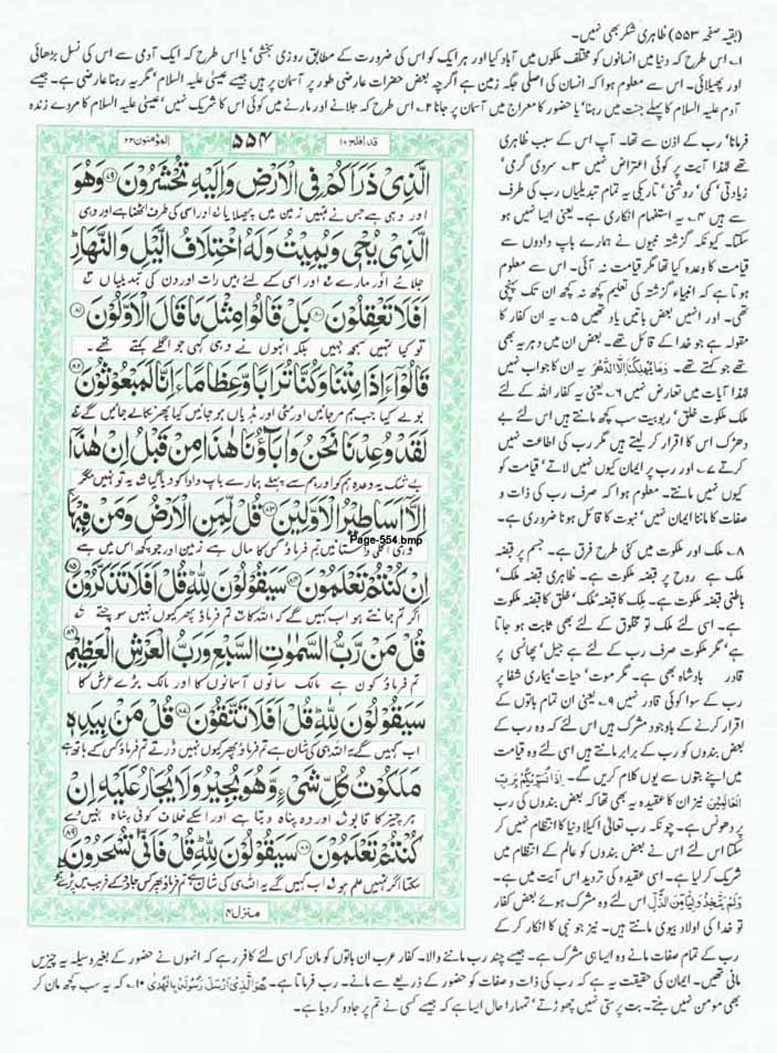 (بقیہ صفحہ ۵۵۳) ظاہری شکر بھی نہیں۔
۱۔ اس طرح کہ دنیا میں انسانوں کو مختلف ملکوں میں آباد کیا اور ہر ایک کو اس کی ضرورت کے مطابق روزی بخشی' یا اس طرح کہ ایک آدمی سے اس کی نسل بڑھائی
اور پھیلائی۔ اس سے معلوم ہوا کہ انسان کی اصلی جگہ زمین ہے اگرچہ بعض حضرات عارضی طور پر آسمان پر ہیں جیسے عیسیٰ علیہ السلام' مگر یہ رہنا عارضی ہے۔ جیسے
آدم علیہ السلام کا پہلے جنت میں رہنا' یا حضور کا معراج میں آسمان پر جانا ۲۔ اس طرح کہ جلانے اور مارنے میں کوئی اس کا شریک نہیں' عیسیٰ علیہ السلام کا مردے زندہ
فرمانا' رب کے اذن سے تھا۔ آپ اس کے سبب ظاہری
تھے لہٰذا آیت پر کوئی اعتراض نہیں ۳۔ سردی گرمی'
زیادتی' کمی' روشنی' تاریکی یہ تمام تبدیلیاں رب کی طرف
سے ہیں ۴۔ یہ استفہام انکاری ہے۔ یعنی ایسا نہیں ہو
سکتا۔ کیونکہ گزشتہ نبیوں نے ہمارے باپ دادوں سے
قیامت کا وعدہ کیا تھا مگر قیامت نہ آئی۔ اس سے معلوم
ہوتا ہے کہ انبیاء گزشتہ کی تعلیم کچھ نہ کچھ ان تک پہنچی
تھی۔ اور انہیں بعض باتیں یاد تھیں ۵۔ یہ ان کفار کا
مقولہ ہے جو خدا کے قائل تھے۔ بعض ان میں دہریہ بھی
تھے جو کہتے تھے۔ وَمَا يُهْلِكُنَا إِلَّا الدَّهْرُ یہ ان کا جواب نہیں
لہٰذا آیات میں تعارض نہیں ۶۔ یعنی یہ کفار اللہ کے لئے
ملک ملکوت خلق' ربوبیت سب کچھ مانتے ہیں اس لئے بے
دھڑک اس کا اقرار کر لیتے ہیں مگر رب کی اطاعت نہیں
کرتے ۷۔ اور رب پر ایمان کیوں نہیں لاتے' قیامت کو
کیوں نہیں مانتے۔ معلوم ہوا کہ صرف رب کی ذات و
صفات کا ماننا ایمان نہیں' نبوت کا قائل ہونا ضروری ہے۔
۸۔ ملک اور ملکوت میں کئی طرح فرق ہے۔ جسم پر قبضہ
ملک ہے روح پر قبضہ ملکوت ہے۔ ظاہری قبضہ ملک'
باطنی قبضہ ملکوت ہے۔ ملک کا قبضہ ملک' خلق کا قبضہ ملکوت
ہے۔ اسی لئے ملک تو مخلوق کے لئے بھی ثابت ہو جاتا
ہے' مگر ملکوت صرف رب کے لئے ہے جیل' پھانسی پر
قادر بادشاہ بھی ہے۔ مگر موت' حیات' بیماری شفا پر
رب کے سوا کوئی قادر نہیں ۹۔ یعنی ان تمام باتوں کے
اقرار کرنے کے باوجود مشرک ہیں اس لئے کہ وہ رب کے
بعض بندوں کو رب کے برابر مانتے ہیں اسی لئے وہ قیامت
میں اپنے بتوں سے یوں کلام کریں گے۔ إِذْ نُسَوِّيكُمْ بِرَبِّ
الْعَالَمِينَ نیز ان کا عقیدہ یہ بھی تھا کہ بعض بندوں کی رب
پر دھونس ہے۔ چونکہ رب تعالیٰ اکیلا دنیا کا انتظام نہیں کر
سکتا اس لئے اس نے بعض بندوں کو عالم کے انتظام میں
شریک کر لیا ہے۔ اسی عقیدہ کی تردید اس آیت میں ہے۔
وَلَمْ يَتَّخِذْ وَلِيًّا مِنَ الذُّلِّ اس لئے وہ مشرک ہوئے بعض کفار
تو خدا کی اولاد بیوی مانتے ہیں۔ نیز جو نبی کا انکار کر کے
قد افلح ۱۸ ۵۵۴ المؤمنون ۲۳
الَّذِي ذَرَأَكُمْ فِي الْأَرْضِ وَإِلَيْهِ تُحْشَرُونَ ﴿۷۹﴾ وَهُوَ
اور وہی ہے جس نے تمہیں زمین میں پھیلایا اور اسی کی طرف اٹھنا ہے اور وہی
الَّذِي يُحْيِي وَيُمِيتُ وَلَهُ اخْتِلَافُ اللَّيْلِ وَالنَّهَارِ
جلائے اور مارے اور اسی کے لئے ہیں رات اور دن کی تبدیلیاں
أَفَلَا تَعْقِلُونَ ﴿۸۰﴾ بَلْ قَالُوا مِثْلَ مَا قَالَ الْأَوَّلُونَ ﴿۸۱﴾
تو کیا تمہیں سمجھ نہیں بلکہ انہوں نے وہی کہی جو اگلے کہتے تھے۔
قَالُوا أَإِذَا مِتْنَا وَكُنَّا تُرَابًا وَعِظَامًا أَإِنَّا لَمَبْعُوثُونَ ﴿۸۲﴾
بولے کیا جب ہم مر جائیں اور مٹی اور ہڈیاں ہو جائیں کیا پھر نکالے جائیں گے
لَقَدْ وُعِدْنَا نَحْنُ وَآبَاؤُنَا هَٰذَا مِنْ قَبْلُ إِنْ هَٰذَا
بے شک یہ وعدہ ہم کو اور ہم سے پہلے ہمارے باپ دادا کو دیا گیا یہ تو نہیں مگر
إِلَّا أَسَاطِيرُ الْأَوَّلِينَ ﴿۸۳﴾ قُلْ لِمَنِ الْأَرْضُ وَمَنْ فِيهَا
وہی اگلی داستانیں تم فرماؤ کس کا مال ہے زمین اور جو کچھ اس میں ہے
Page-554.bmp
إِنْ كُنْتُمْ تَعْلَمُونَ ﴿۸۴﴾ سَيَقُولُونَ لِلَّهِ قُلْ أَفَلَا تَذَكَّرُونَ ﴿۸۵﴾
اگر تم جانتے ہو اب کہیں گے کہ اللہ کا تم فرماؤ پھر کیوں نہیں سوچتے
قُلْ مَنْ رَبُّ السَّمَاوَاتِ السَّبْعِ وَرَبُّ الْعَرْشِ الْعَظِيمِ ﴿۸۶﴾
تم فرماؤ کون ہے مالک ساتوں آسمانوں کا اور مالک بڑے عرش کا
سَيَقُولُونَ لِلَّهِ قُلْ أَفَلَا تَتَّقُونَ ﴿۸۷﴾ قُلْ مَنْ بِيَدِهِ
اب کہیں گے یہ اللہ ہی کی شان ہے تم فرماؤ پھر کیوں نہیں ڈرتے تم فرماؤ کس کے ہاتھ ہے
مَلَكُوتُ كُلِّ شَيْءٍ وَهُوَ يُجِيرُ وَلَا يُجَارُ عَلَيْهِ إِنْ
ہر چیز کا قابو اور وہ پناہ دیتا ہے اور اس کے خلاف کوئی پناہ نہیں دے
كُنْتُمْ تَعْلَمُونَ ﴿۸۸﴾ سَيَقُولُونَ لِلَّهِ قُلْ فَأَنَّىٰ تُسْحَرُونَ ﴿۸۹﴾
سکتا اگر تمہیں علم ہو اب کہیں گے یہ اللہ ہی کی شان ہے تم فرماؤ پھر کس جادو کے فریب میں پڑے ہو
منزل ۴
رب کے تمام صفات مانے وہ ایسا ہی مشرک ہے۔ جیسے چند رب ماننے والا۔ کفار عرب ان باتوں کو مان کر اسی لئے کافر رہے کہ انہوں نے حضور کے بغیر وسیلہ یہ چیزیں
مانی تھیں۔ ایمان کی حقیقت یہ ہے کہ رب کی ذات و صفات کو حضور کے ذریعے سے مانے۔ رب فرماتا ہے۔ هُوَ الَّذِي أَرْسَلَ رَسُولَهُ بِالْهُدَىٰ ۱۰۔ کہ یہ سب کچھ مان کر
بھی مومن نہیں بنتے۔ بت پرستی نہیں چھوڑتے' تمہارا حال ایسا ہے کہ جیسے کسی نے تم پر جادو کر دیا ہے۔